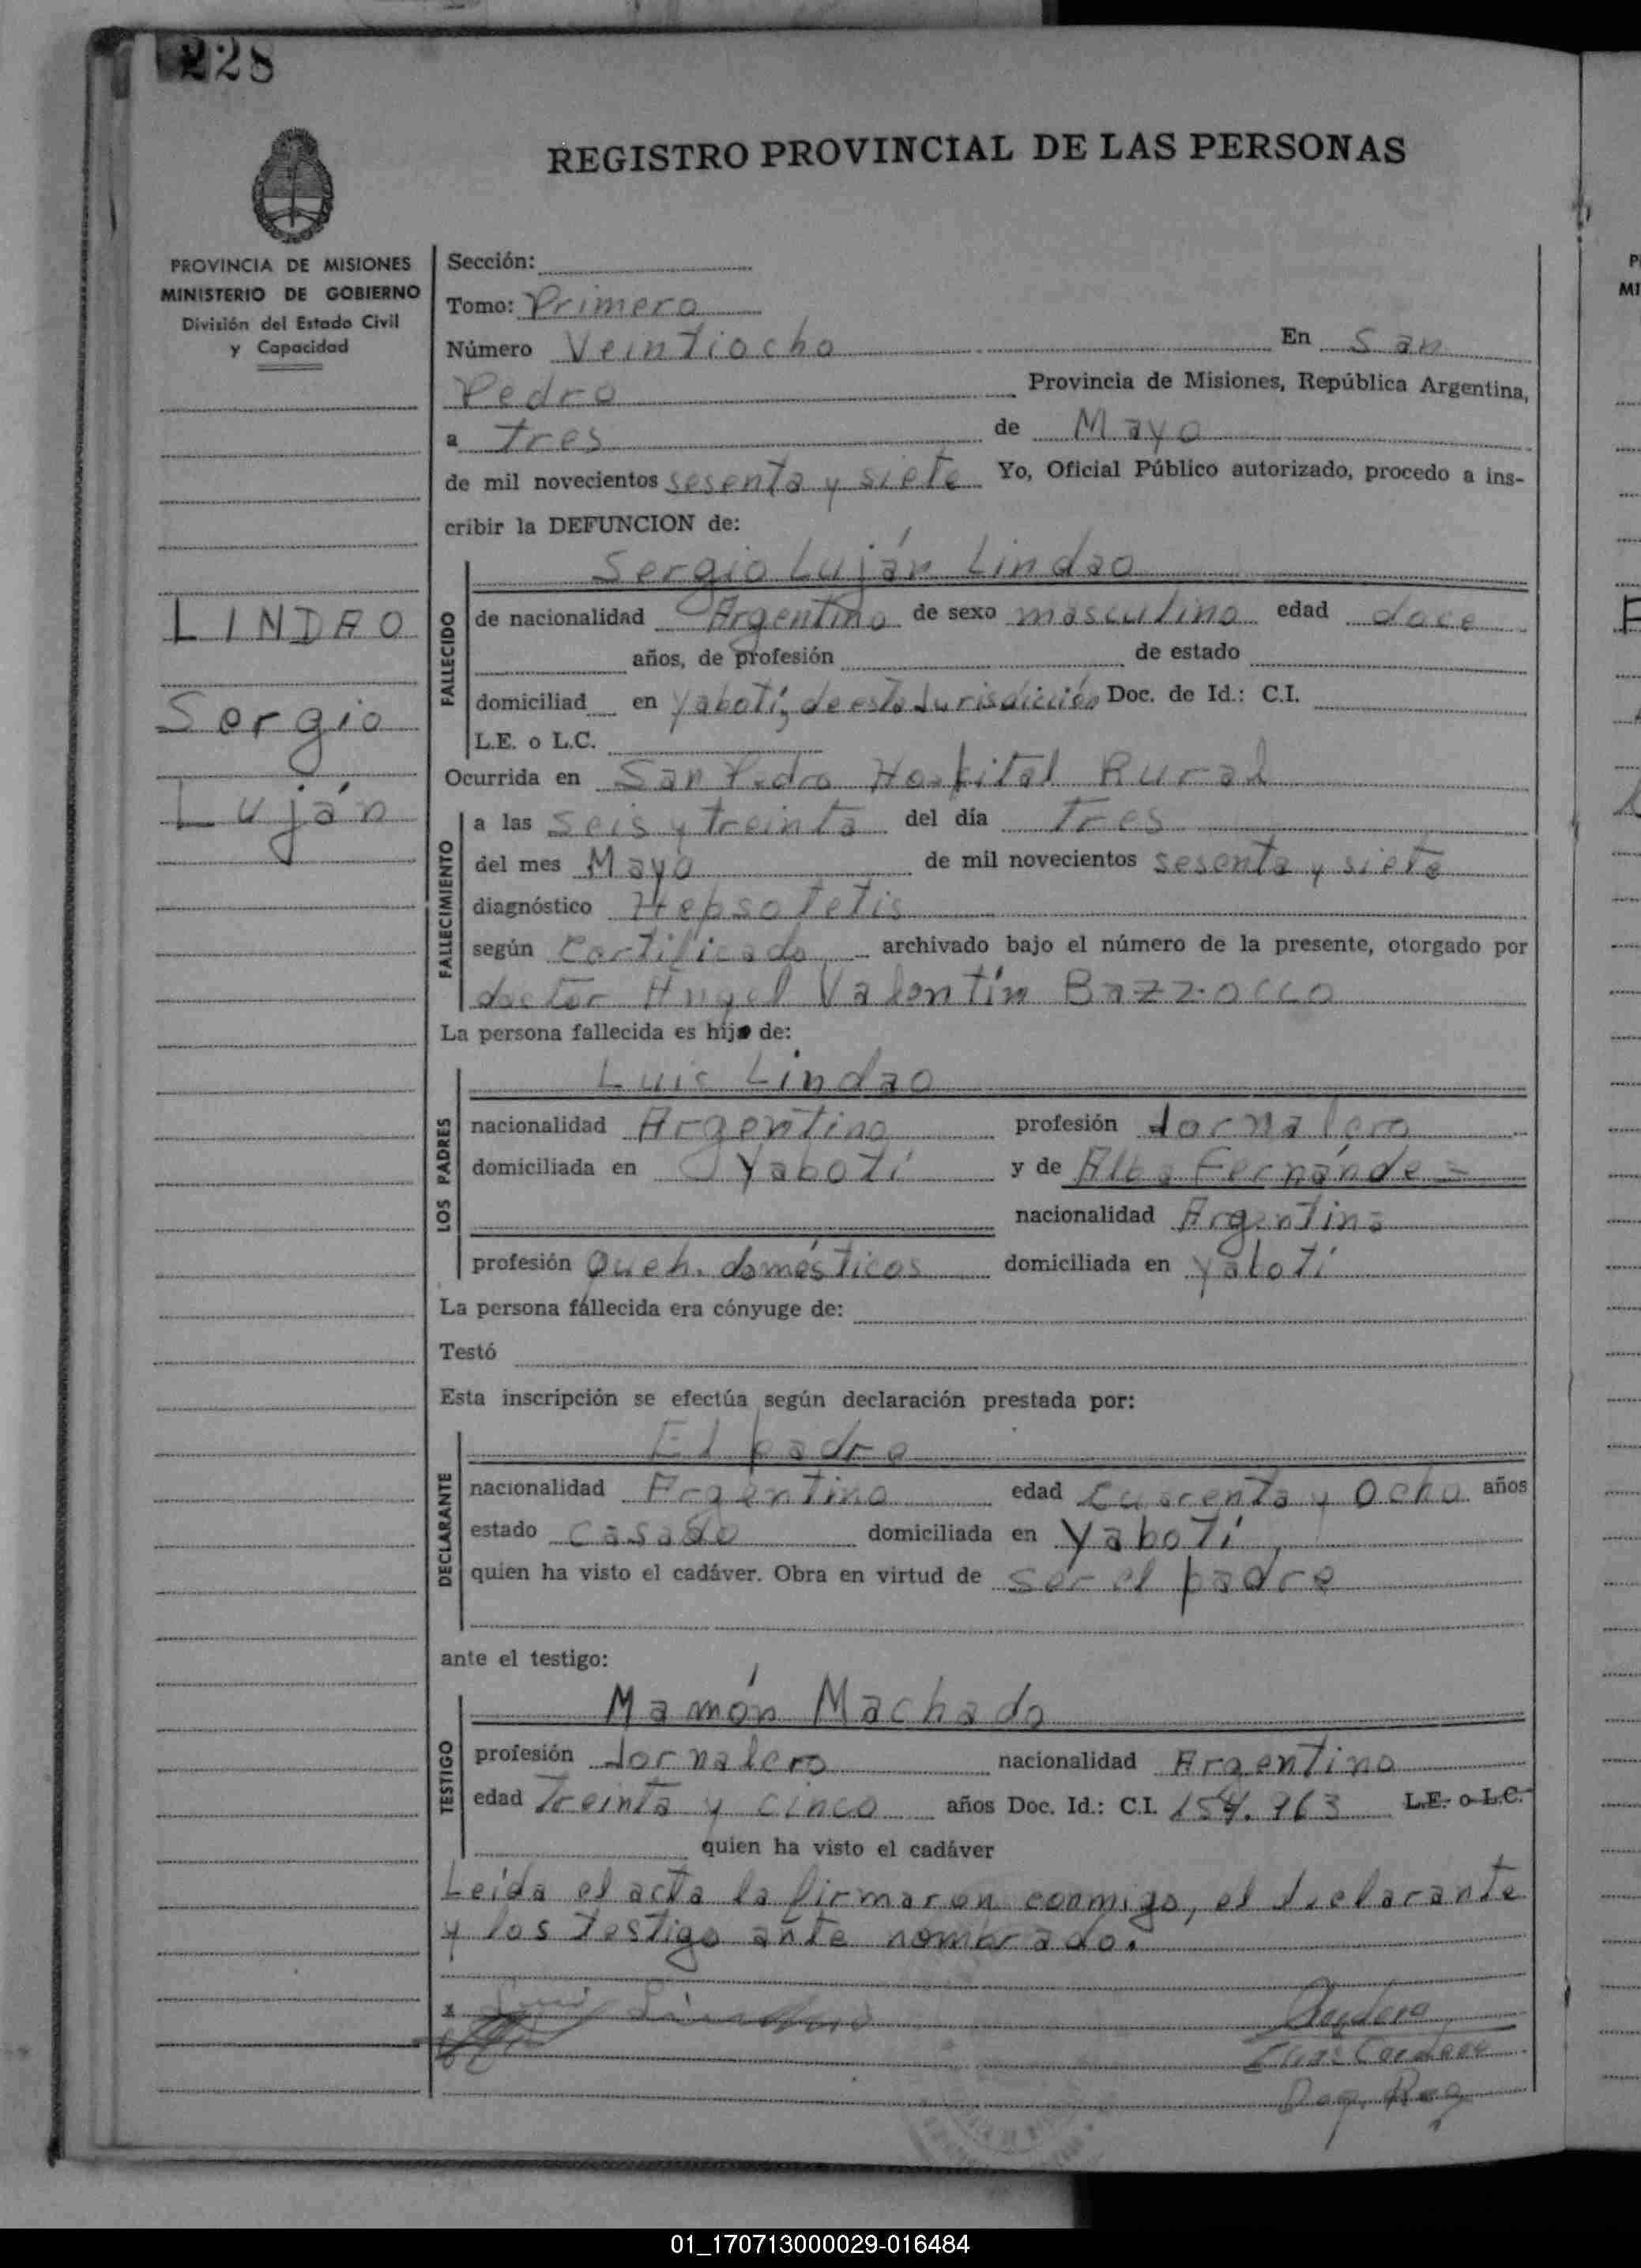 228
REGISTRO PROVINCIAL DE LAS PERSONAS
PROVINCIA DE MISIONES
MINISTERIO DE GOBIERNO
División del Estado Civil
y Capacidad
LINDAO
Sergio
Luján
Sección:
Tomo: Primero
Número Veintiocho En San
Pedro Provincia de Misiones, República Argentina,
a tres de Mayo
de mil novecientos sesenta y siete Yo, Oficial Público autorizado, procedo a ins-
cribir la DEFUNCION de:
Sergio Luján Lindao
FALLECIDO
de nacionalidad Argentino de sexo masculino edad doce
años, de profesión de estado
domiciliad en Yabotí, de esta Jurisdicción Doc. de Id.: C.I.
L.E. o L.C.
Ocurrida en San Pedro Hospital Rural
FALLECIMIENTO
a las seis y treinta del día tres
del mes Mayo de mil novecientos sesenta y siete
diagnóstico
según Certificado archivado bajo el número de la presente, otorgado por
doctor Angel Valentín Bazzocco
La persona fallecida es hijo de:
LOS PADRES
Luis Lindao
nacionalidad Argentino profesión Jornalero
domiciliada en Yabotí y de Alba Fernández
nacionalidad Argentina
profesión Queh. domésticos domiciliada en Yabotí
La persona fallecida era cónyuge de:
Testó
Esta inscripción se efectúa según declaración prestada por:
DECLARANTE
El padre
nacionalidad Argentino edad cuarenta y ocho años
estado casado domiciliada en Yabotí
quien ha visto el cadáver. Obra en virtud de ser el padre
ante el testigo:
TESTIGO
Mamón Machado
profesión Jornalero nacionalidad Argentino
edad Treinta y cinco años Doc. Id.: C.I. 154.963 L.E. o L.C.
quien ha visto el cadáver
Leída el acta la firmaron conmigo, el declarante
y los testigo ante nombrado.
x Luis Lindao
01_170713000029-016484